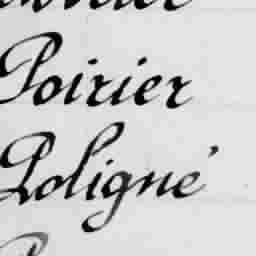 Poirier
Poligné